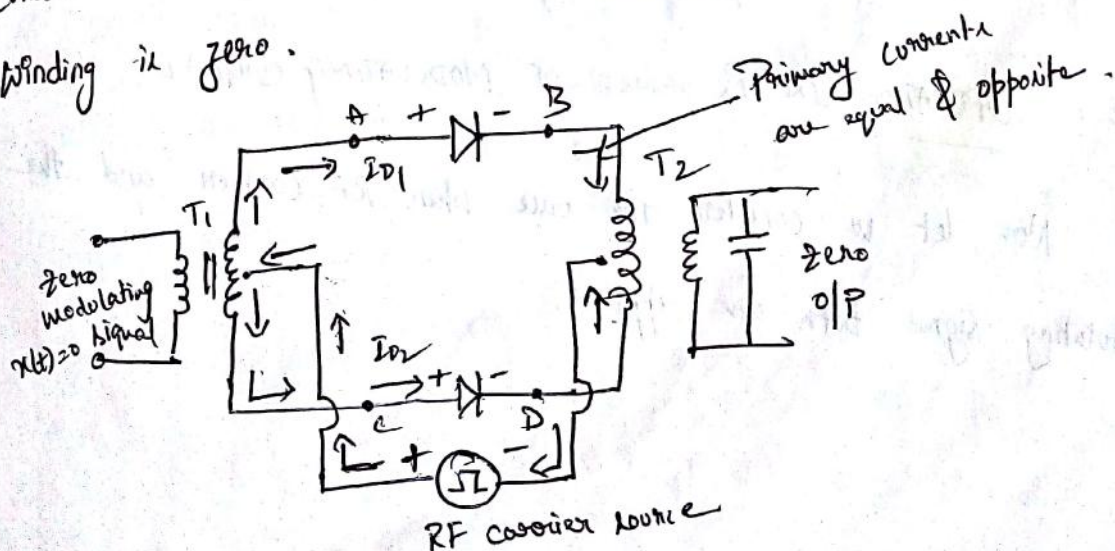 Winding is zero.
Primary currents
are equal & opposite.
A + - B
ID1
T1
T2
zero
modulating
signal
x(t)=0
zero
O/P
ID2
+ -
C
D
+ -
RF carrier source